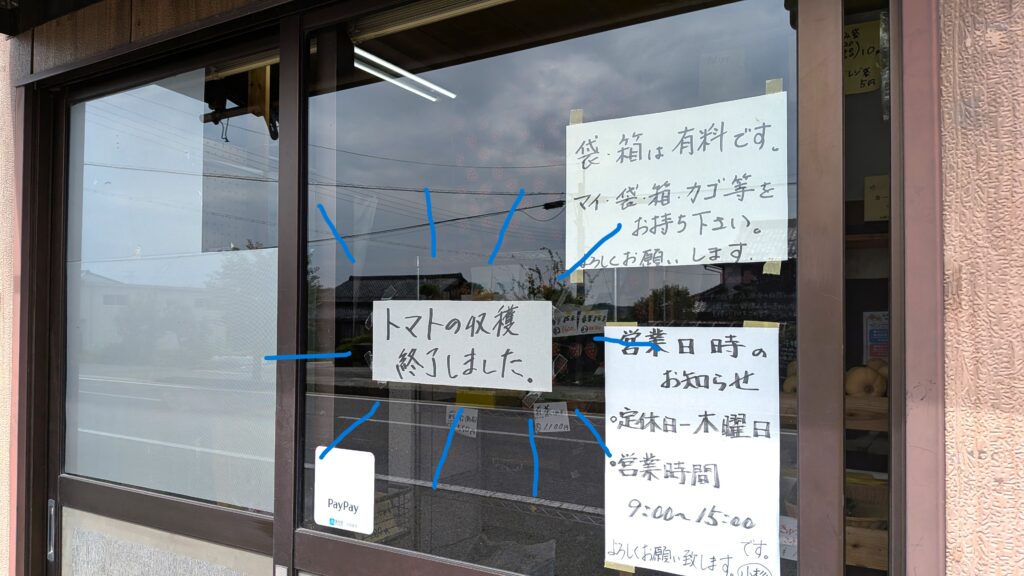 袋・箱は有料です。
マイ・袋・箱・カゴ等を
お持ち下さい。
よろしくお願いします。
トマトの収穫
終了しました。
営業日時の
お知らせ
定休日ー木曜日
営業時間
9:00〜15:00
です。
よろしくお願い致します。
PayPay